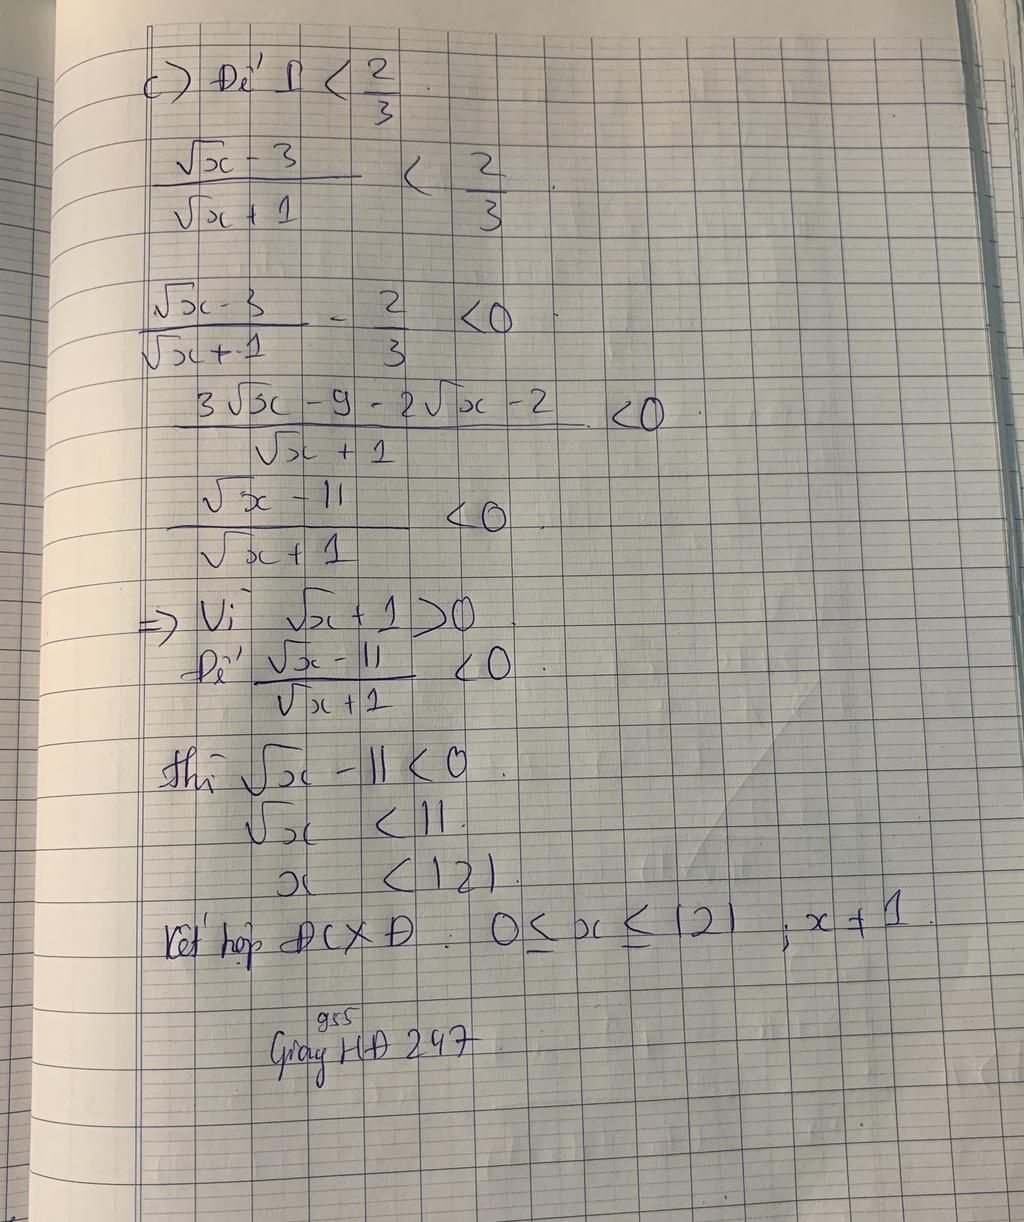 c) Để P < 2/3
(√x - 3)/(√x + 1) < 2/3
(√x - 3)/(√x + 1) - 2/3 < 0
(3√x - 9 - 2√x - 2)/(√x + 1) < 0
(√x - 11)/(√x + 1) < 0
=> Vì √x + 1 > 0
Để (√x - 11)/(√x + 1) < 0
thì √x - 11 < 0
√x < 11
x < 121
Kết hợp ĐCXĐ : 0 ≤ x ≤ 121 ; x ≠ 1
955
HĐ 247